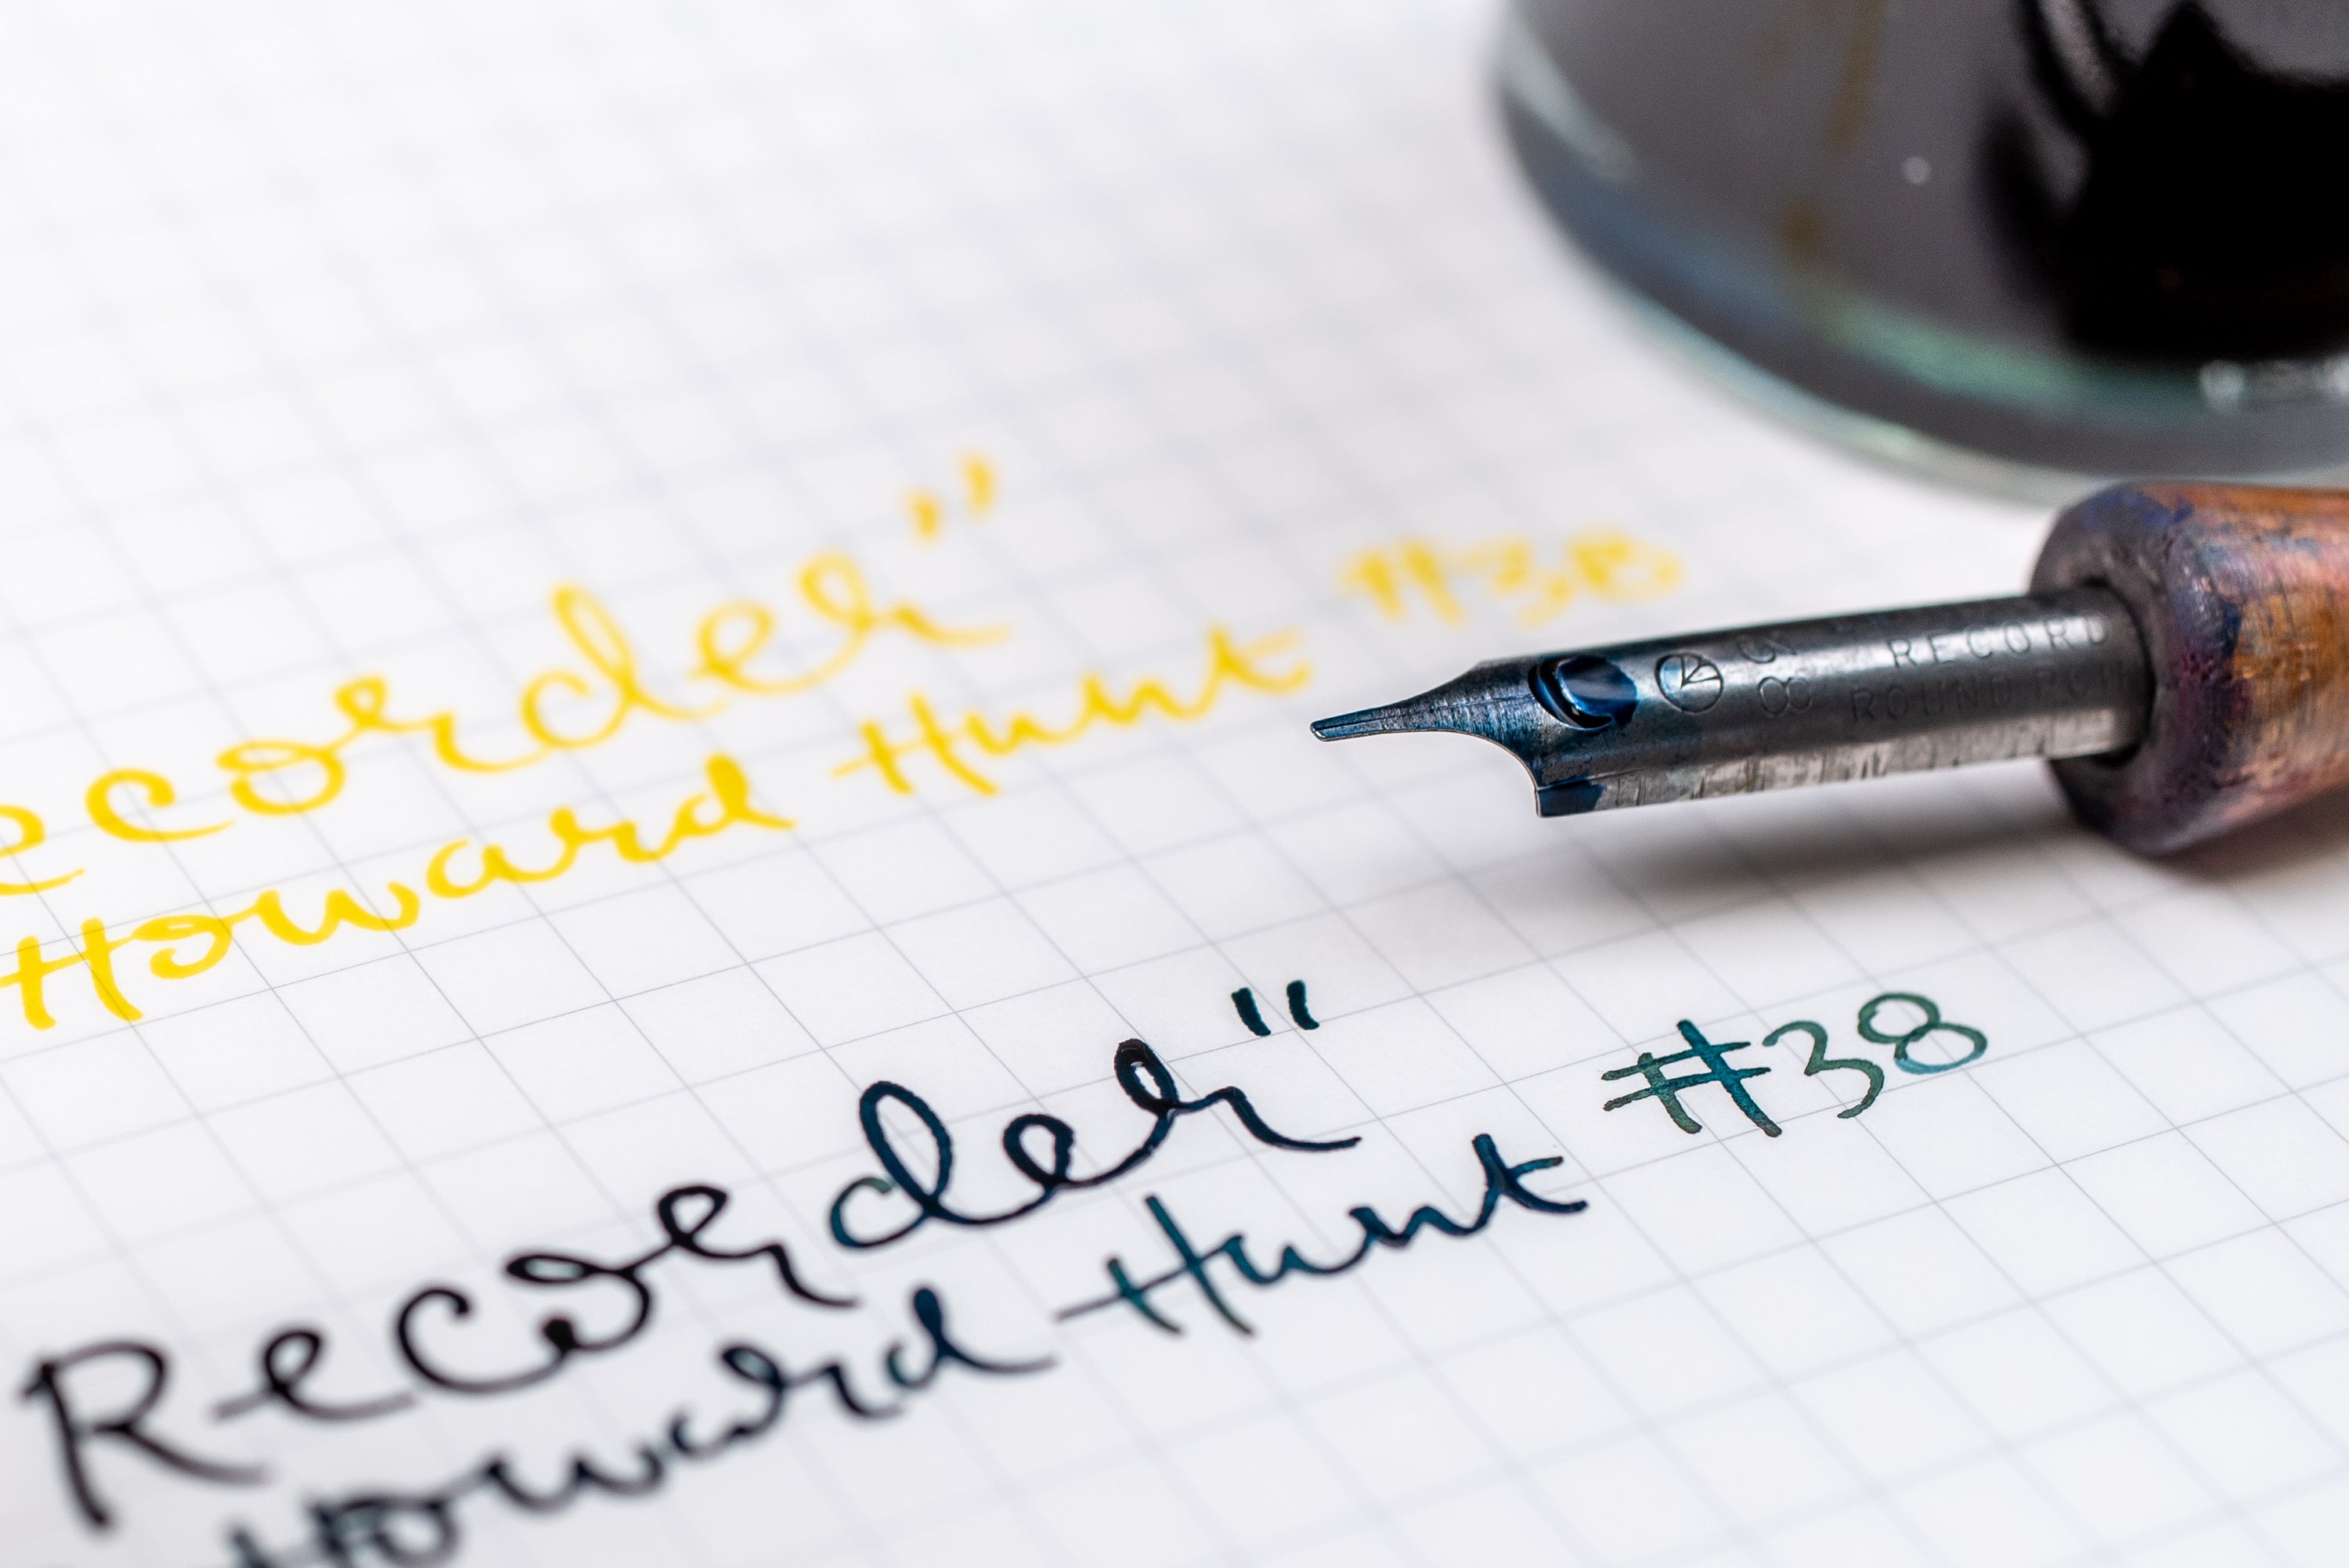 ecorder"
Howard Hunt #38
Recorder"
Howard Hunt #38
RECORD
ROUND